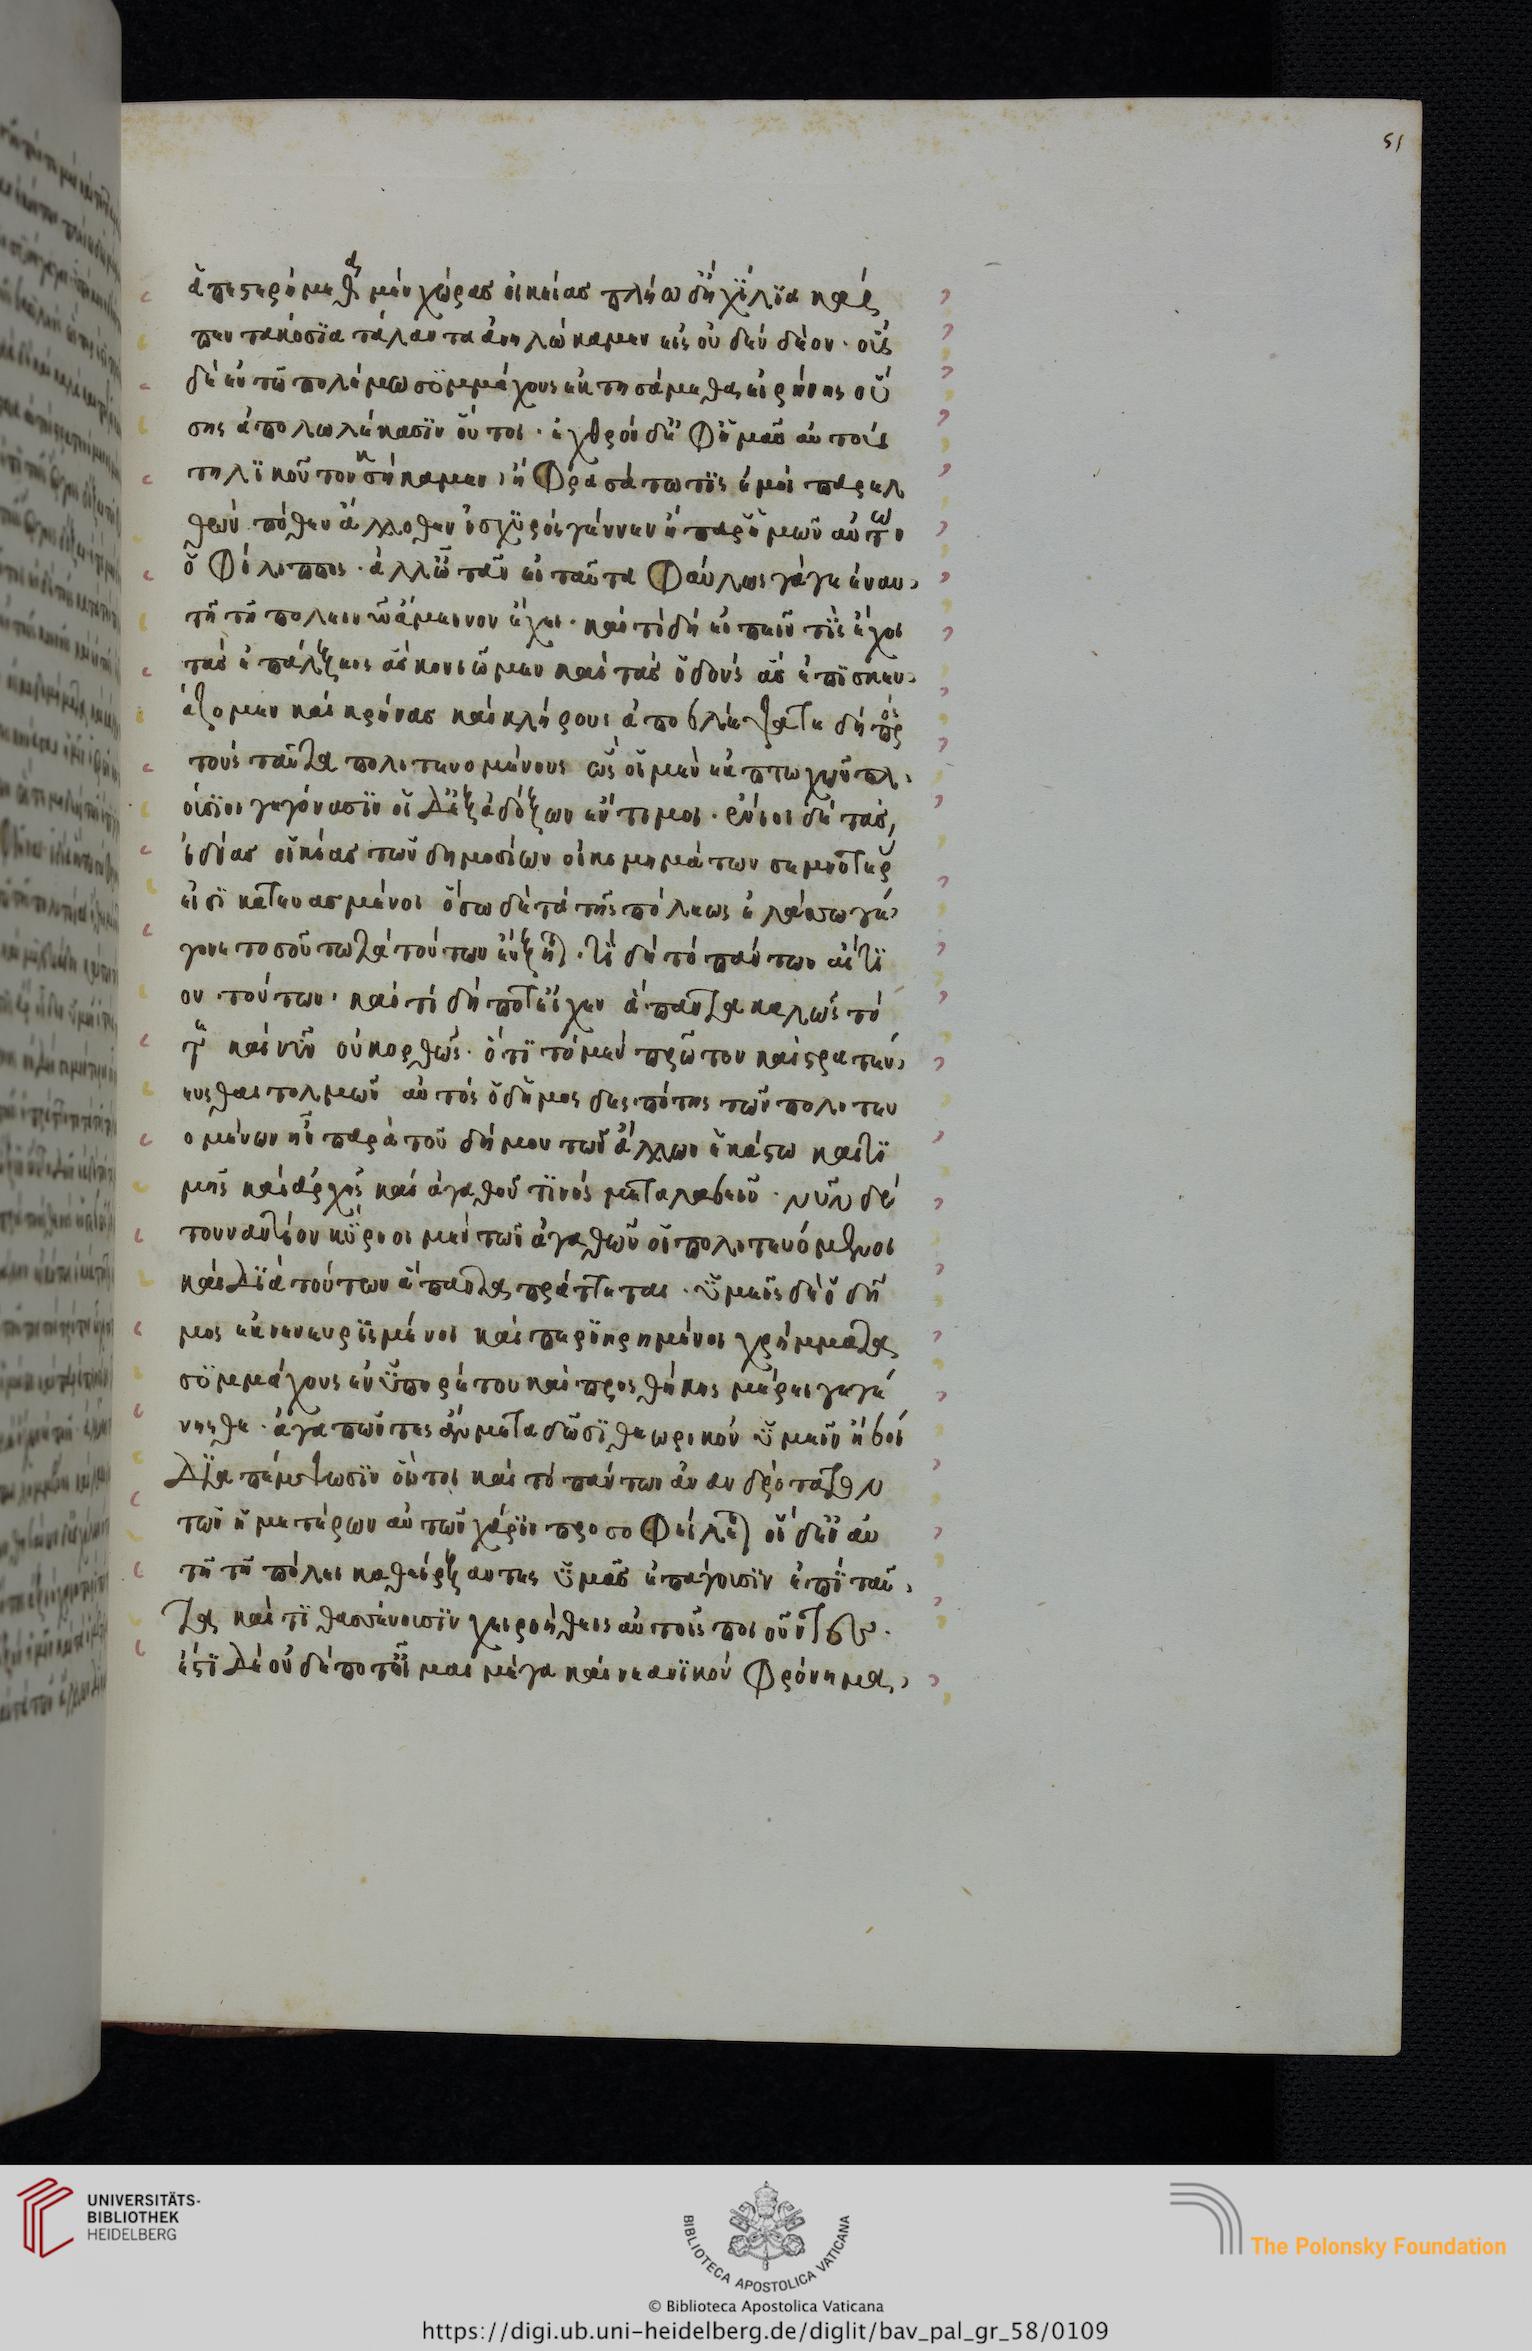 51
ἀπεστερήμεθα μὲν χώρας οἰκείας πλείω δὴ χίλια καὶ
πεντακόσια τάλαντα ἀνηλώκαμεν εἰς οὐδὲν δέον · οὓς
δὲ ἐν τῶ πολέμω συμμάχους ἐκτησάμεθα εἰρήνης οὔ
σης ἀπολωλέκασιν οὗτοι · ἐχθρὸν δὲ ἐφ' ἡμᾶς αὐτοὺς
τηλικοῦτον ἠσκήκαμεν · ἢ φρασάτω τις ἐμοὶ παρελ
θὼν πόθεν ἄλλοθεν ἰσχυρὸς γέγονεν ἢ παρ' ἡμῶν αὐτῶν
ὁ Φίλιππος · ἀλλ' ὦ τᾶν εἰ ταῦτα φαύλως τά γε ἐν αυ
τῆ τῆ πόλει νῦν ἄμεινον ἔχει · καὶ τί δὴ εἰπεῖν τις ἔχοι
τὰς ἐπάλξεις ἃς κονιῶμεν καὶ τὰς ὁδοὺς ἃς ἐπισκευ
άζομεν καὶ κρήνας καὶ κλήρους ἀποβλέψατε δὴ πρὸς
τοὺς ταῦτα πολιτευομένους ὧν οἱ μὲν ἐκ πτωχῶν πλ
ούσιοι γεγόνασιν οἱ δὲ ἐξ ἀδόξων ἔντιμοι · ἔνιοι δὲ τὰς
ἰδίας οἰκίας τῶν δημοσίων οἰκοδομημάτων σεμνοτέρ
εἰσι κατευασμένοι ὅσω δὲ τὰ τῆς πόλεως ἐλάττω γέ
γονε τοσούτω τὰ τούτων ηὔξηται · τί δὴ τὸ πάντων αἴτι
ον τούτων · καὶ τί δήποτ' εἶχεν ἅπαντα καλῶς τό
τε καὶ νῦν οὐκ ὀρθῶς · ὅτι τὸ μὲν πρῶτον καὶ στρατεύ
εσθαι τολμῶν αὐτὸς ὁ δῆμος δεσπότης τῶν πολιτευ
ομένων ἦν παρὰ τοῦ δήμου τῶν ἄλλων ἑκάστω καὶ τι
μῆς καὶ ἀρχῆς καὶ ἀγαθοῦ τινὸς μεταλαβεῖν · νῦν δὲ
τουναντίον κύριοι μὲν τῶν ἀγαθῶν οἱ πολιτευόμενοι
καὶ διὰ τούτων ἅπαντα πράττεται · ὑμεῖς δὲ ὁ δῆ
μος ἐκνενευρισμένοι καὶ περιηρημένοι χρήμματα
συμμάχους ἐν ὑπηρέτου καὶ προσθήκης μέρει γεγέ
νησθε · ἀγαπῶντες ἐὰν μεταδῶσι θεωρικὸν ὑμεῖν ἢ βοι
δια πέμψωσιν οὗτοι καὶ τὸ πάντων ἀνανδρότατον
τῶν ἡμετέρων αὐτῶν χάριν προσοφείλετε οἱ δ' ἐν αυ
τῆ τῆ πόλει καθείρξαντες ὑμᾶς ἐπάγουσιν ἐπὶ ταῦ
τα καὶ τιθασσεύουσιν χειροήθεις αὐτοῖς ποιοῦντες ·
ἔστι δὲ οὐδέποτ' οἶμαι μέγα καὶ νεανικὸν φρόνημα
UNIVERSITÄTS-
BIBLIOTHEK
HEIDELBERG
BIBLIOTECA APOSTOLICA VATICANA
The Polonsky Foundation
© Biblioteca Apostolica Vaticana
https://digi.ub.uni-heidelberg.de/diglit/bav_pal_gr_58/0109